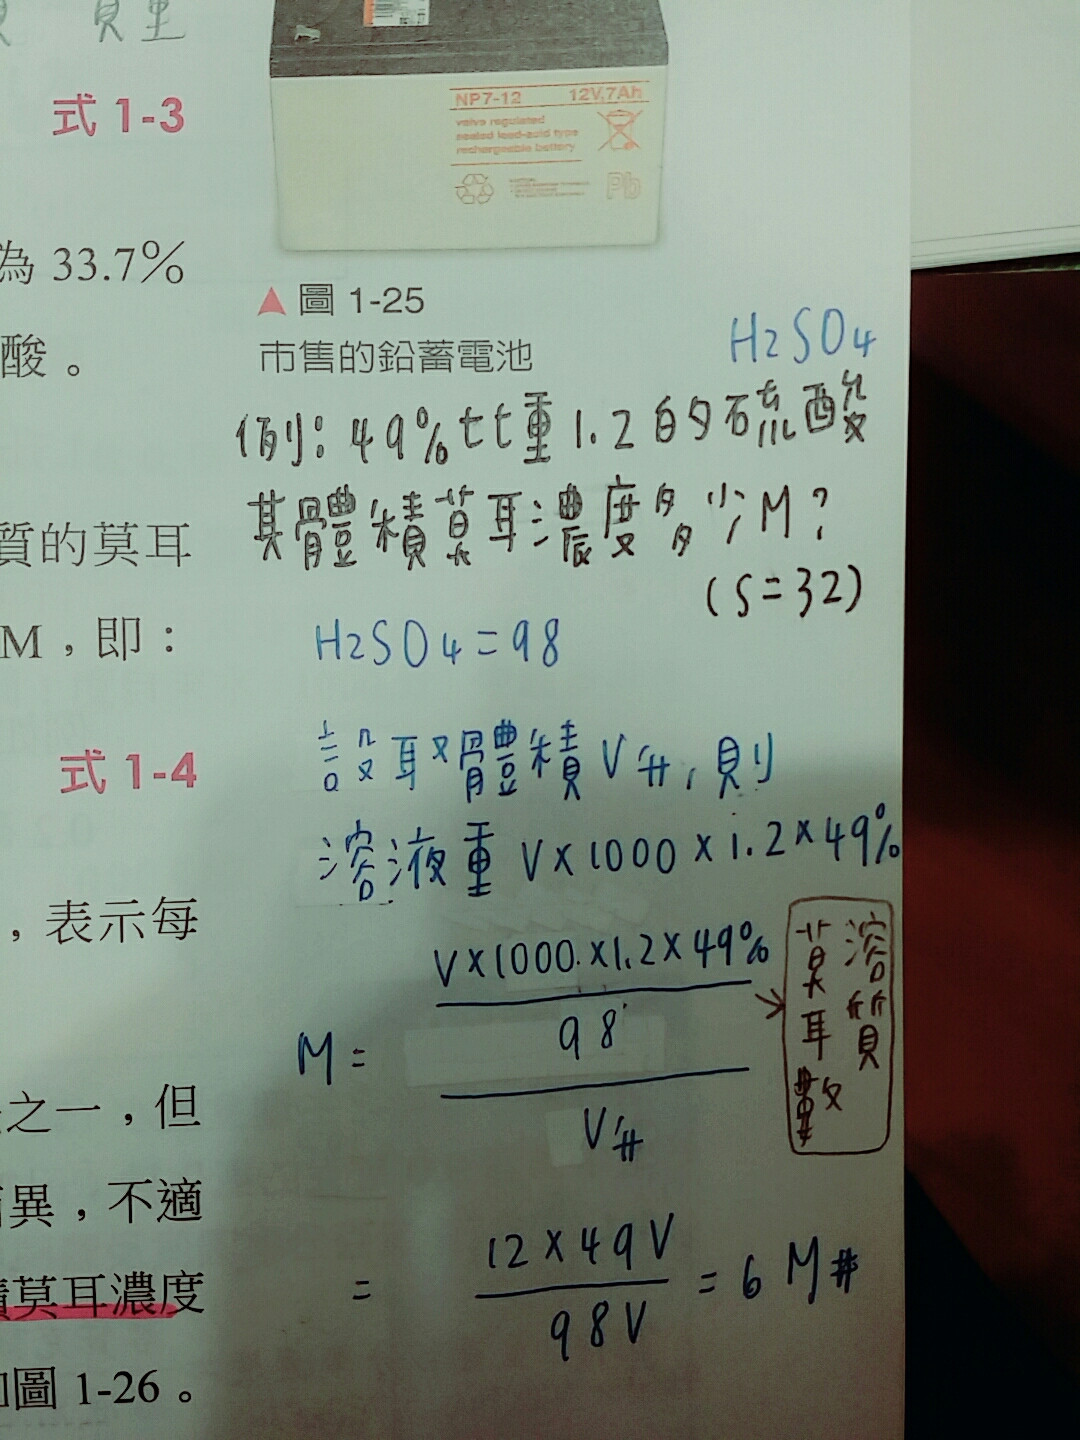 質量
式 1-3
為 33.7%
酸。
質的莫耳
M，即：
式 1-4
，表示每
之一，但
異，不適
積莫耳濃度
如圖 1-26。
NP7-12 12V,7Ah
valve regulated
sealed lead-acid type
rechargeable battery
Pb
▲圖 1-25
市售的鉛蓄電池
H2SO4
例：49%比重1.2的硫酸
其體積莫耳濃度多少M？
(S=32)
H2SO4=98
設取體積V升，則
溶液重 V×1000×1.2×49%
V×1000×1.2×49%
98
M=
V升
溶質
莫耳數
12×49V
=
98V
=6M#